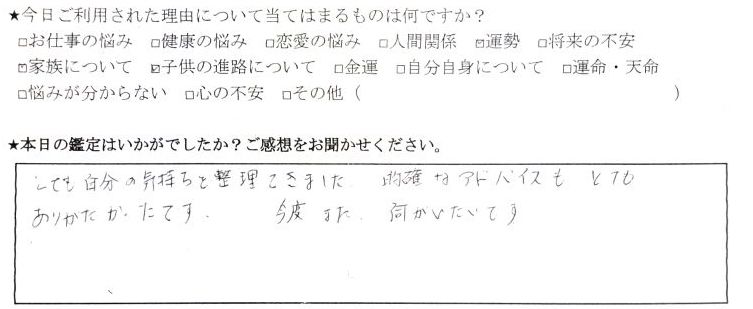 ★今日ご利用された理由について当てはまるものは何ですか？
□お仕事の悩み □健康の悩み □恋愛の悩み □人間関係 ☑運勢 □将来の不安
☑家族について ☑子供の進路について □金運 □自分自身について □運命・天命
□悩みが分からない □心の不安 □その他（ ）
★本日の鑑定はいかがでしたか？ご感想をお聞かせください。
とても自分の気持ちを整理できました。的確なアドバイスもとても
ありがたかったです。 今度また、伺がいたいです